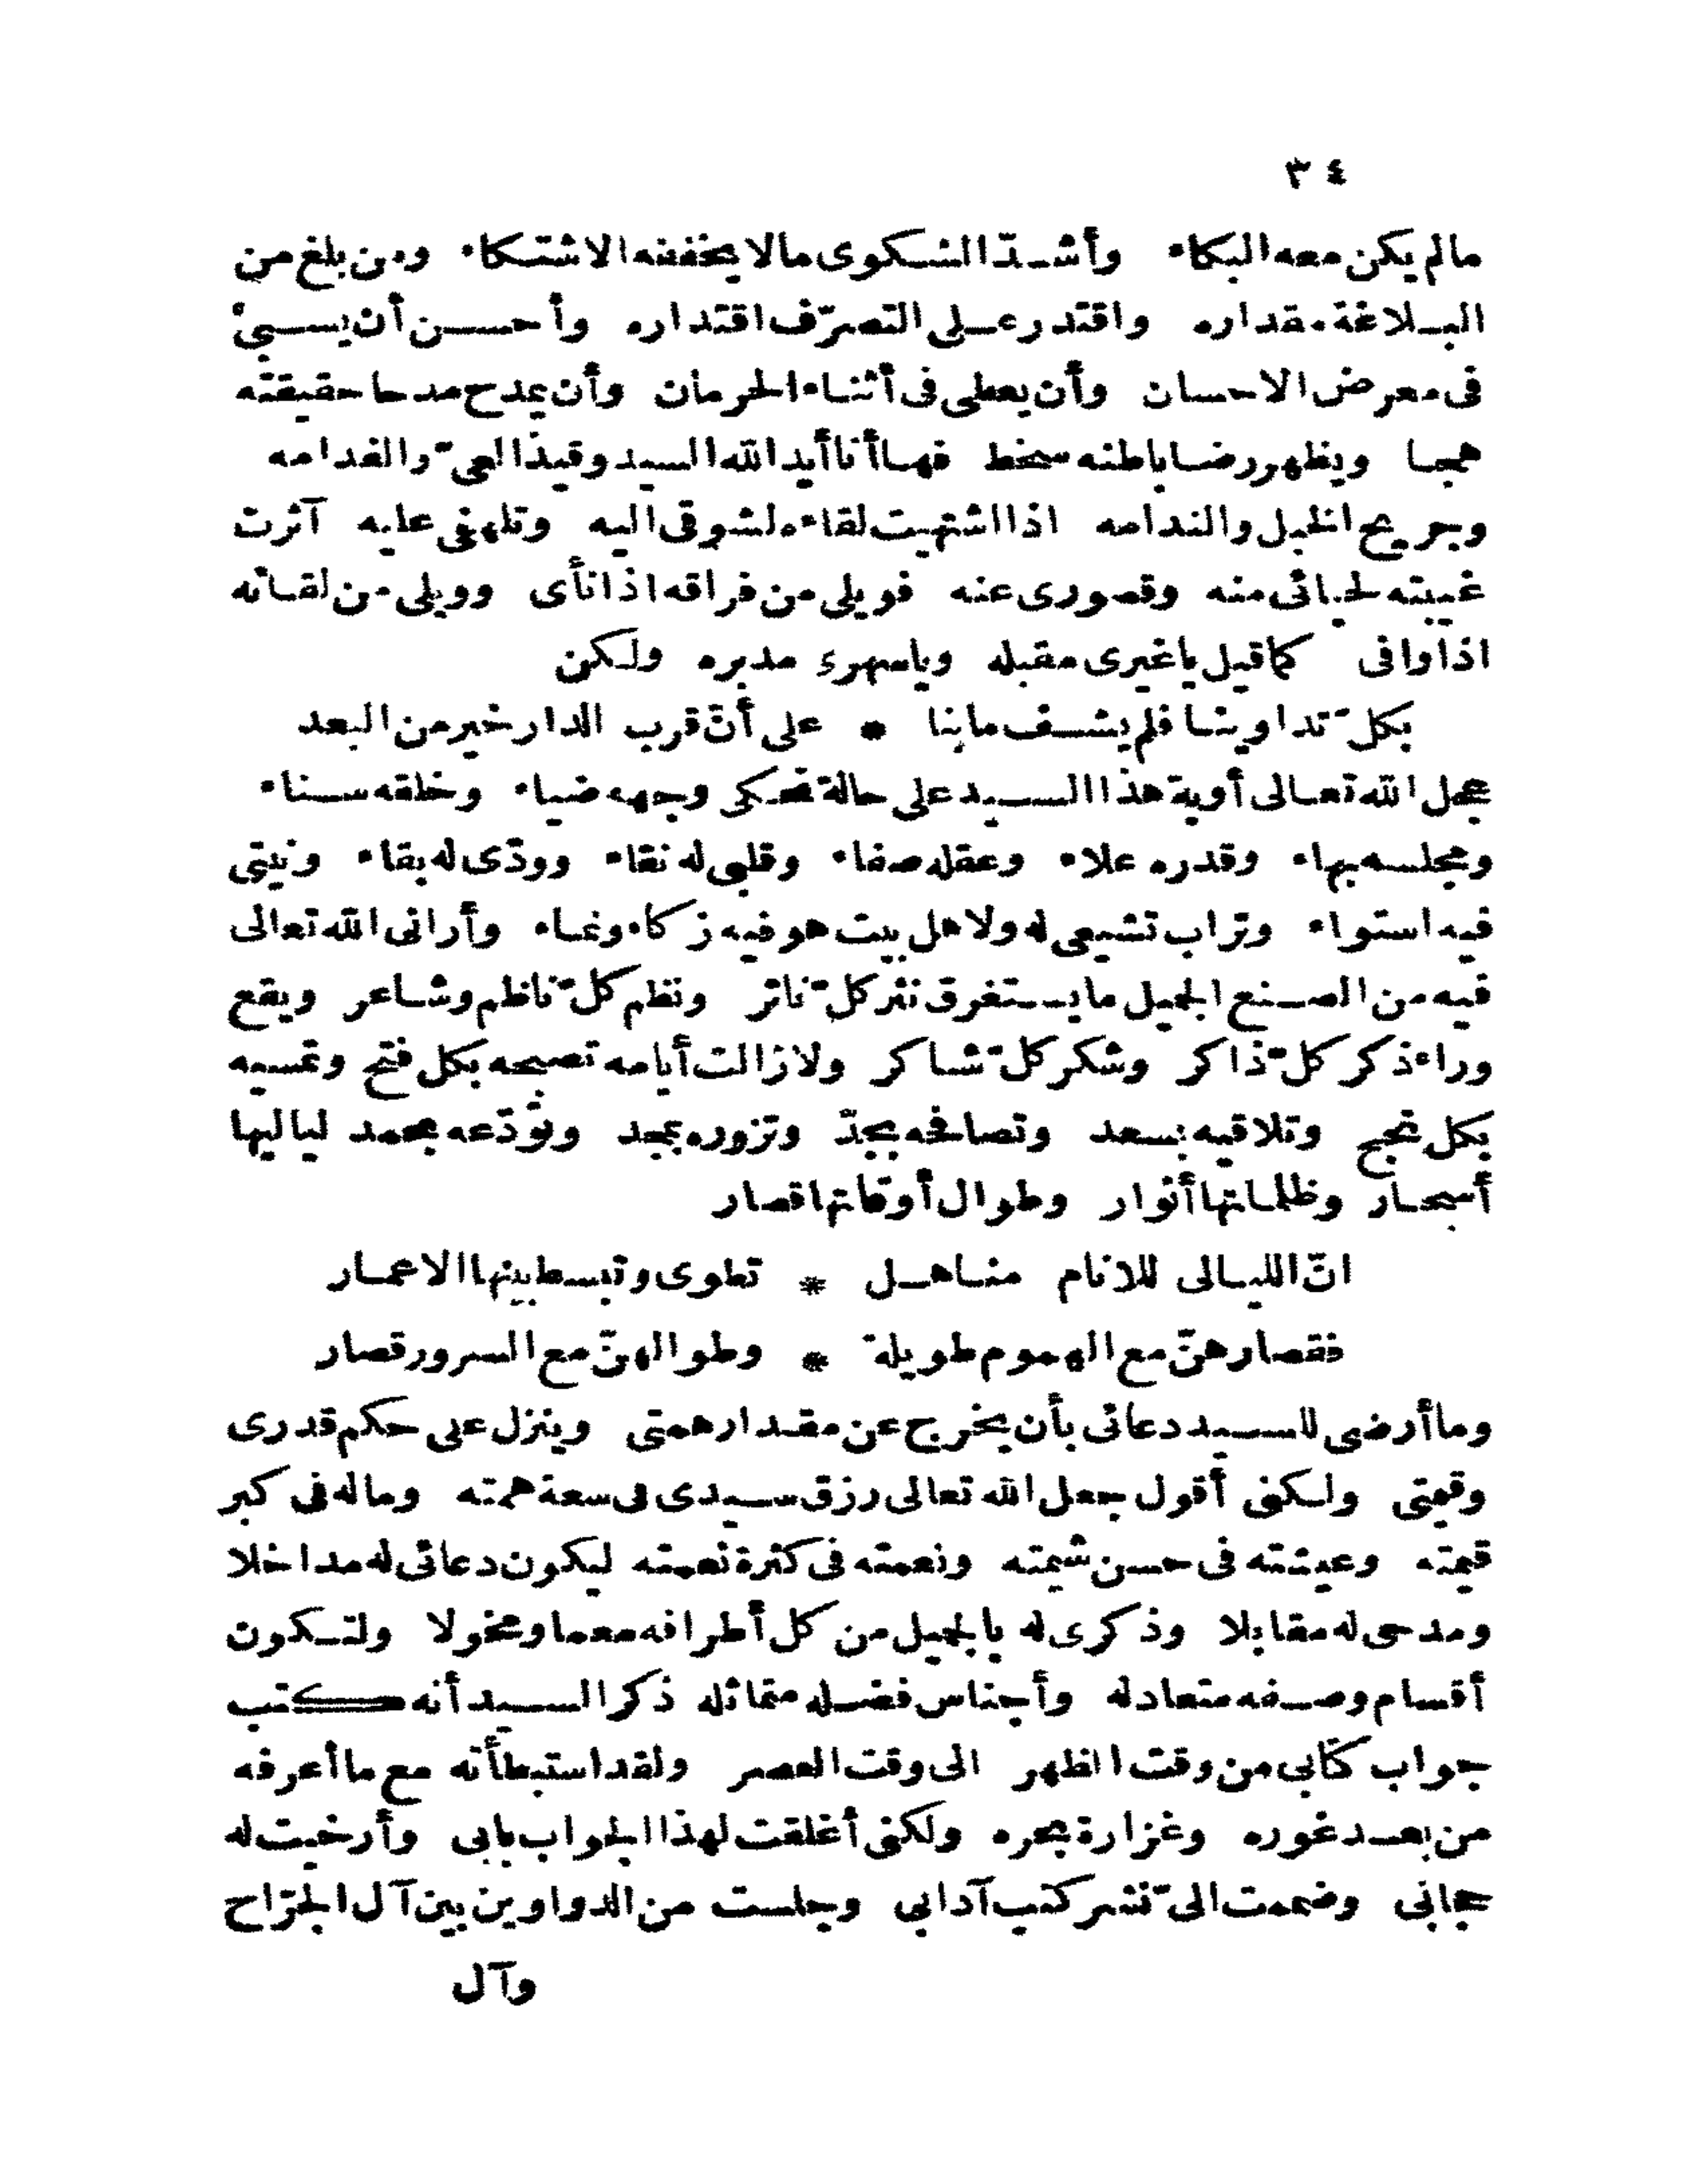 ٣٤
مالم يكن معه البكاء وأشدّ الشكوى مالا يخففه الاشتكاء ومن بلغ من
البلاغة مقداره واقتدر على التصرّف اقتداره وأحسن أن يسىء
فى معرض الاحسان وأن يعطى فى أثناء الحرمان وأن يمدح مدحا حقيقته
همجا ويظهر رضا باطنه سخط فهاأنا أيد الله السيد وقيذ العىّ والفدامه
وجريح الخجل والندامه اذا اشتهيت لقاءه لشوقى اليه وتلهفى عليه آثرت
غيبته لحيائى منه وقصورى عنه فويلى من فراقه اذا نأى وويلى من لقائه
اذا وافى كما قيل ياغيرى مقبله وياسهرى مدبره ولكن
بكلّ تداوينا فلم يشف مابنا * على أنّ قرب الدار خير من البعد
عجل الله تعالى أوبة هذا السيد على حالة تحكى وجهه ضياء وخلقه سناء
ومجلسه بهاء وقدره علاء وعقله صفاء وقلبى له نقاء وودّى له بقاء ونيتى
فيه استواء وتراب تشيعى له ولاهل بيت هو فيه زكاء ونماء وأرانى الله تعالى
فيه من الصنع الجميل ما يستغرق نثر كلّ ناثر ونظم كلّ ناظم وشاعر ويقع
وراء ذكر كلّ ذاكر وشكر كلّ شاكر ولازالت أيامه تصبحه بكل فتح وتمسيه
بكل نجح وتلاقيه بسعد وتصافحه بجدّ وتزوره بمجد وتودّعه بحمد لياليها
أسحار وظلماتها أنوار وطوال أوقاتها قصار
انّ الليالى للانام مناهل * تطوى وتبسط بينها الاعمار
فقصارهنّ مع الهموم طويلة * وطوالهنّ مع السرور قصار
وما أرضى للسيد دعائى بأن يخرج عن مقدار همتى وينزل على حكم قدرى
وقيمتى ولكنى أقول جعل الله تعالى رزق سيدى فى سعة همته وماله فى كبر
قيمته وعيشته فى حسن شيمته ونعمته فى كثرة نعمته ليكون دعائى له مداخلا
ومدحى له مقابلا وذكرى له بالجميل من كل أطرافه معما ومخولا ولتكون
أقسام وصفه متعادله وأجناس فضله متماثله ذكر السيد أنه كتب
جواب كتابى من وقت الظهر الى وقت العصر ولقد استبطأته مع ما أعرفه
من بعد غوره وغزارة بحره ولكنى أغلقت لهذا الجواب بابى وأرخيت له
حجابى وضممت الىّ نشر كتب آدابى وجلست من الدواوين بين آل الجرّاح
وآل